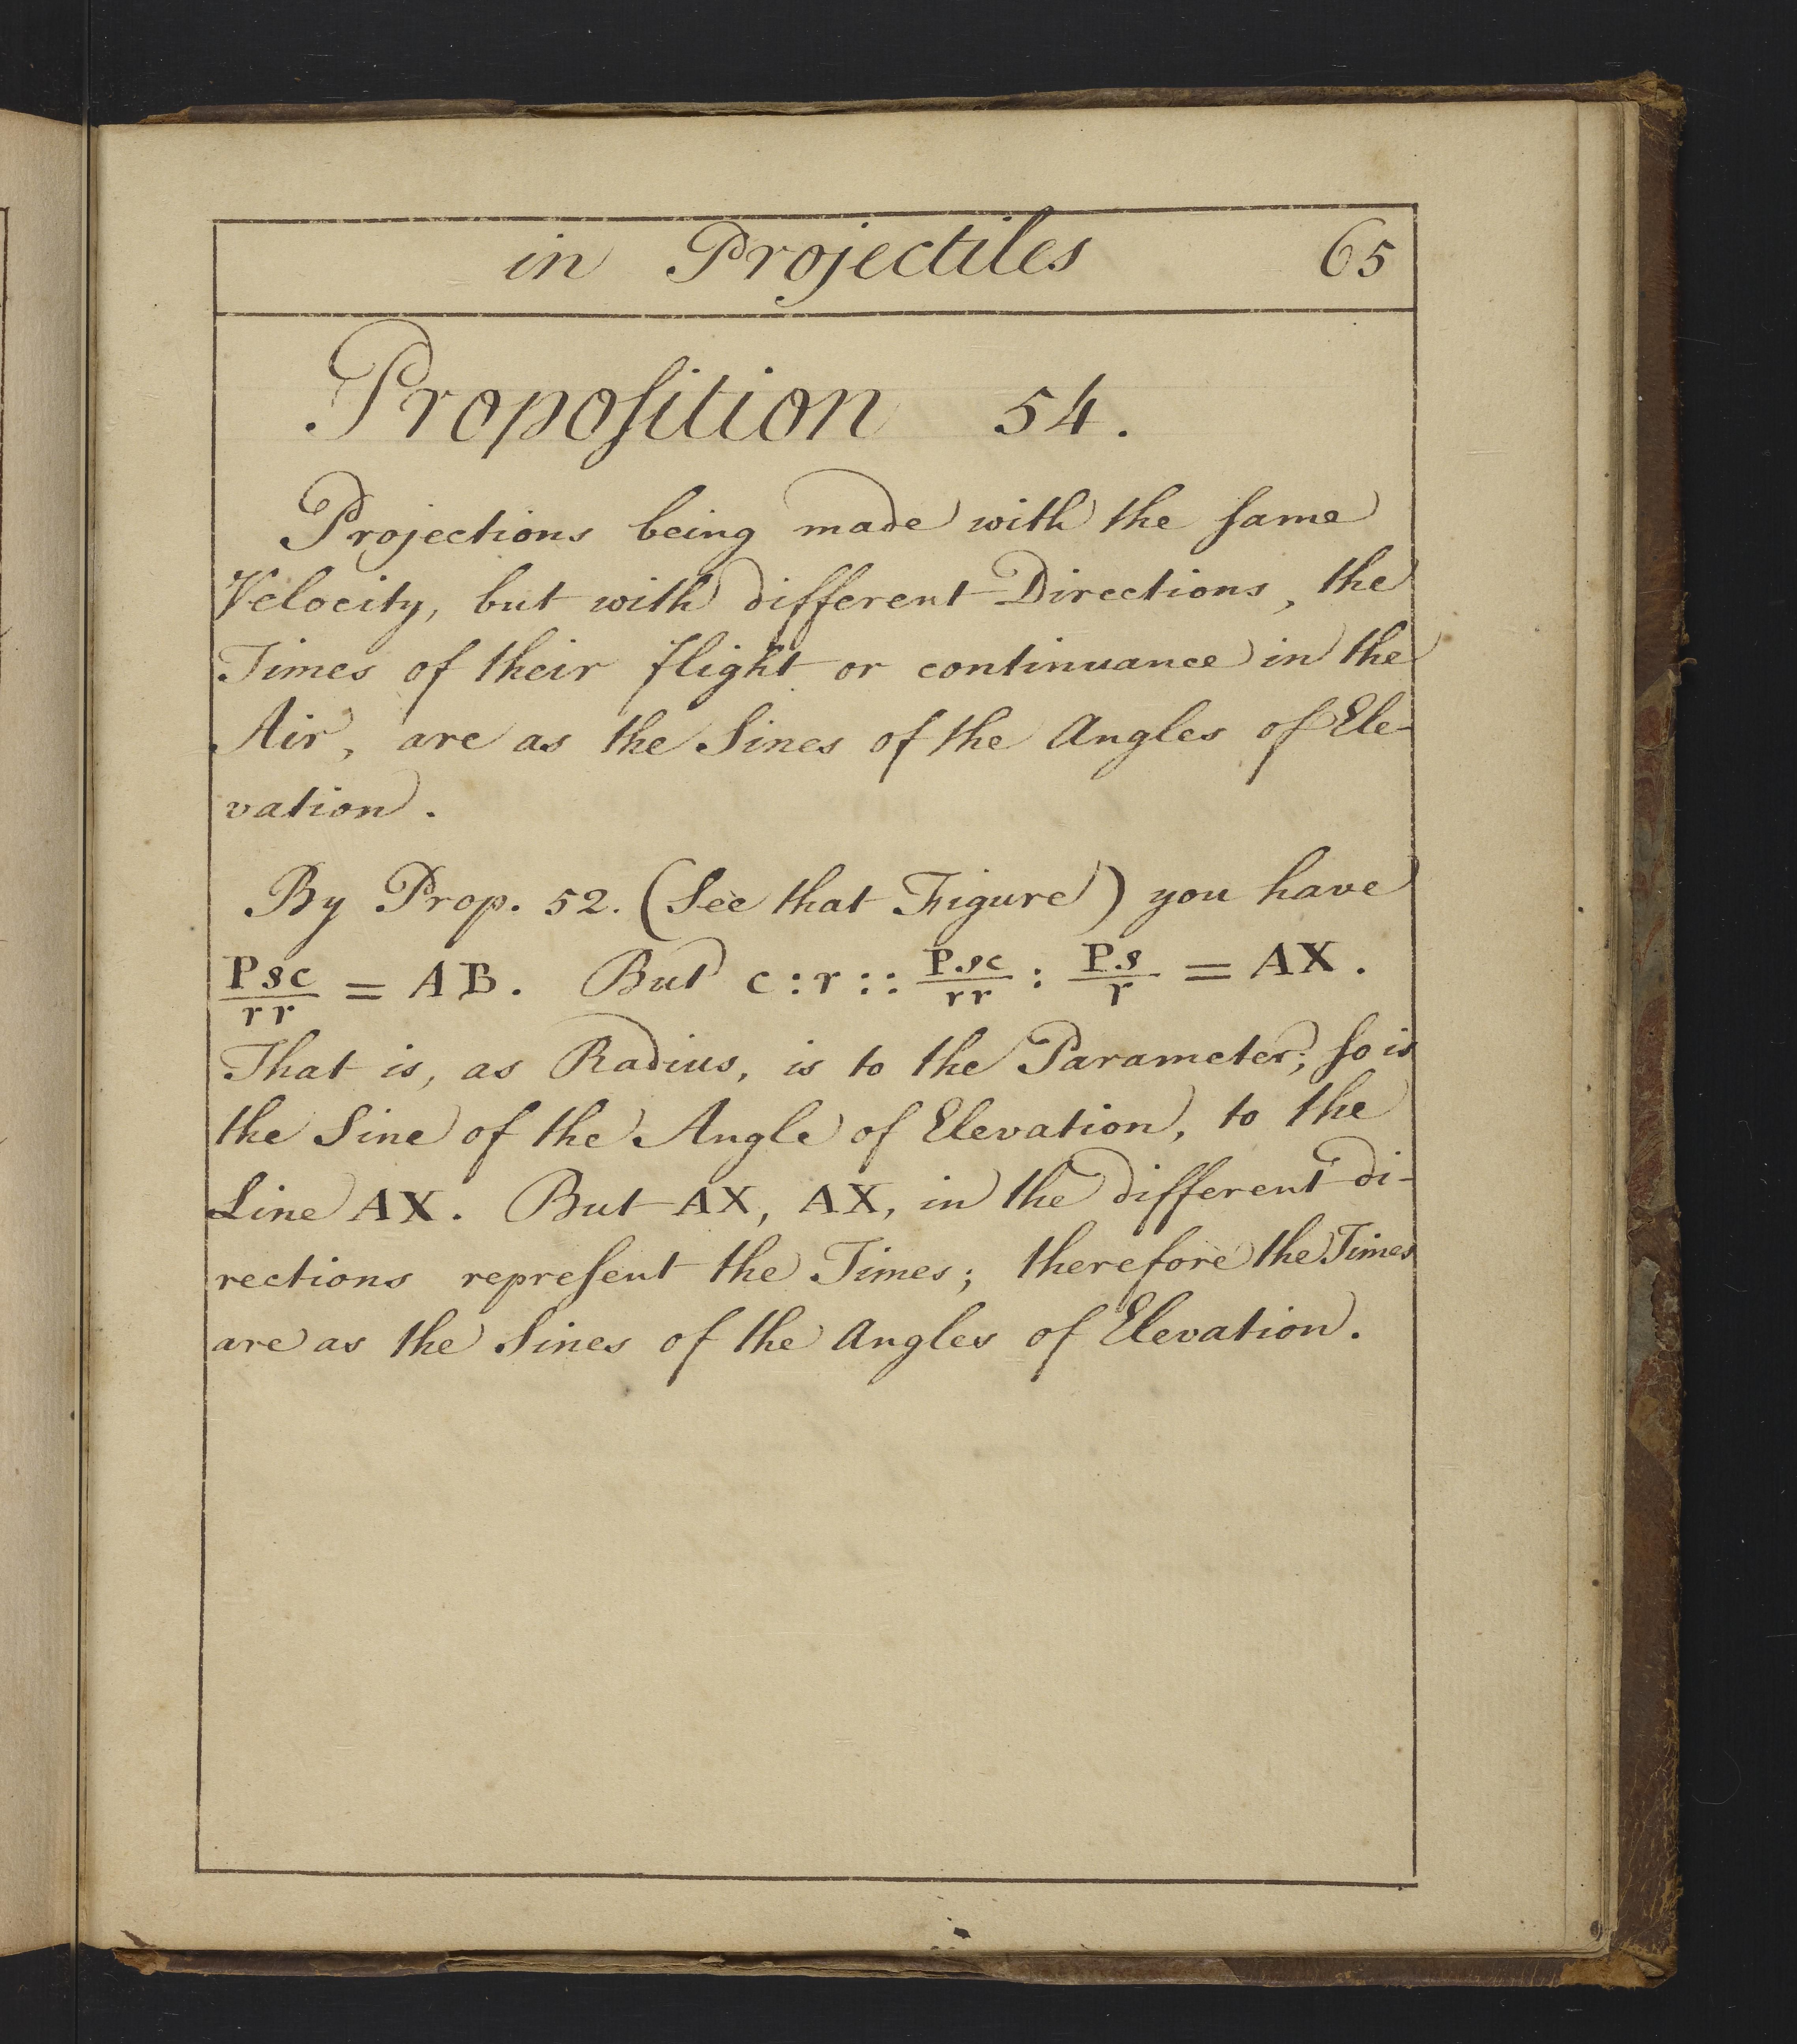 in Projectiles 65
Propoſition 54.
Projections being made with the ſame
Velocity, but with different Directions, the
Times of their flight or continuance in the
Air, are as the Sines of the Angles of Ele-
vation.
By Prop. 52. (See that Figure) you have
Psc/rr = AB. But c : r :: P.sc/rr : P.s/r = AX.
That is, as Radius, is to the Parameter; ſo is
the Sine of the Angle of Elevation, to the
Line AX. But AX, AX, in the different di-
rections repreſent the Times; therefore the Times
are as the Sines of the Angles of Elevation.